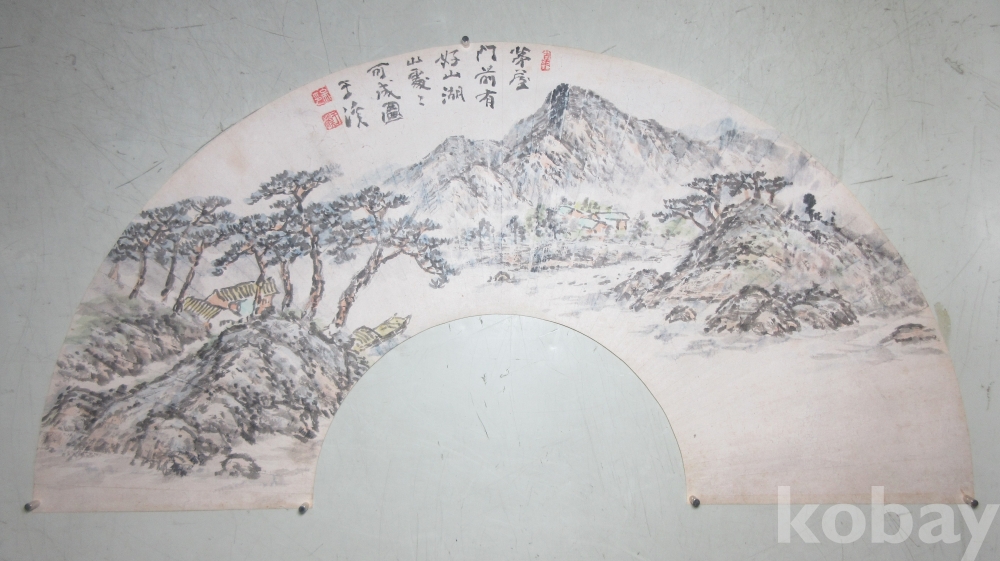 茅屋
門前有
好山湖
山處〻
可成圖
玉溪
kobay